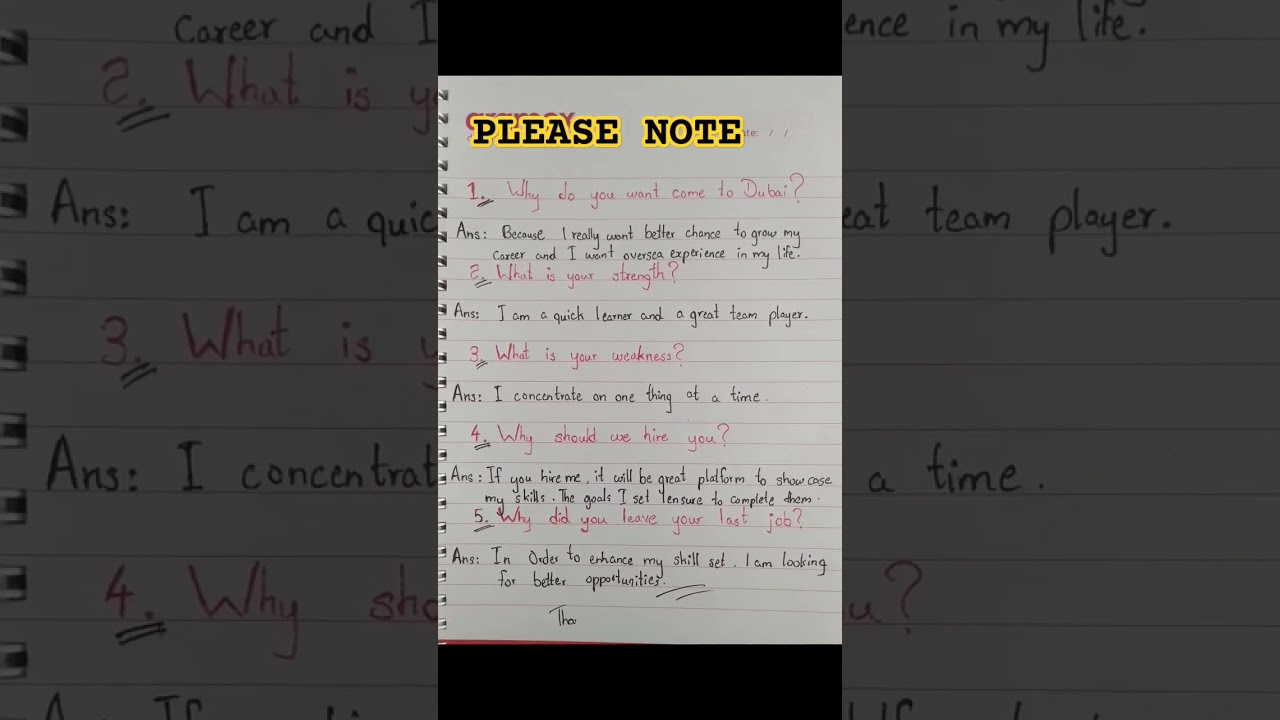 PLEASE NOTE
1. Why do you want come to Dubai?
Ans: Because I really want better chance to grow my
career and I want oversea experience in my life.
2. What is your strength?
Ans: I am a quick learner and a great team player.
3. What is your weakness?
Ans: I concentrate on one thing at a time.
4. Why should we hire you?
Ans: If you hire me, it will be great platform to show case
my skills. The goals I set I ensure to complete them.
5. Why did you leave your last job?
Ans: In Order to enhance my skill set. I am looking
for better opportunities.
Tha